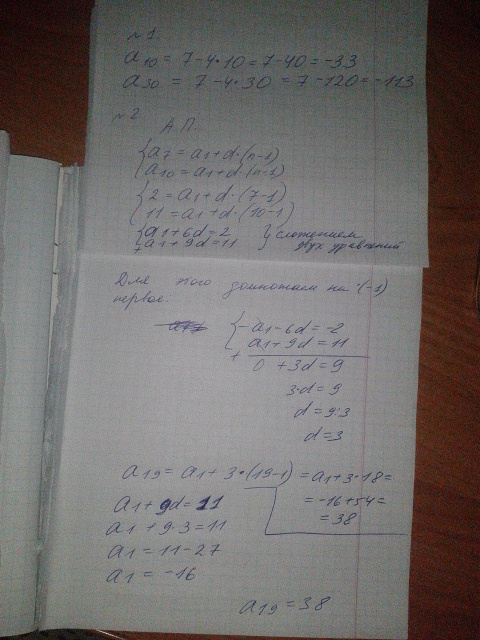 №1
a10 = 7-4·10 = 7-40 = -33
a30 = 7-4·30 = 7-120 = -113
№2
А.П.
{a7 = a1+d·(n-1)
{a10 = a1+d·(n-1)
{2 = a1+d·(7-1)
{11 = a1+d·(10-1)
{a1+6d=2 } сложением
+a1+9d=11 двух уравнений
Для этого домножаем на ·(-1)
первое:
{-a1-6d=-2
+ a1+9d=11
0 +3d=9
3·d=9
d=9:3
d=3
a19 = a1+3·(19-1) = a1+3·18=
a1+9d=11 = -16+54=
a1+9·3=11 = 38
a1 = 11-27
a1 = -16
a19 = 38